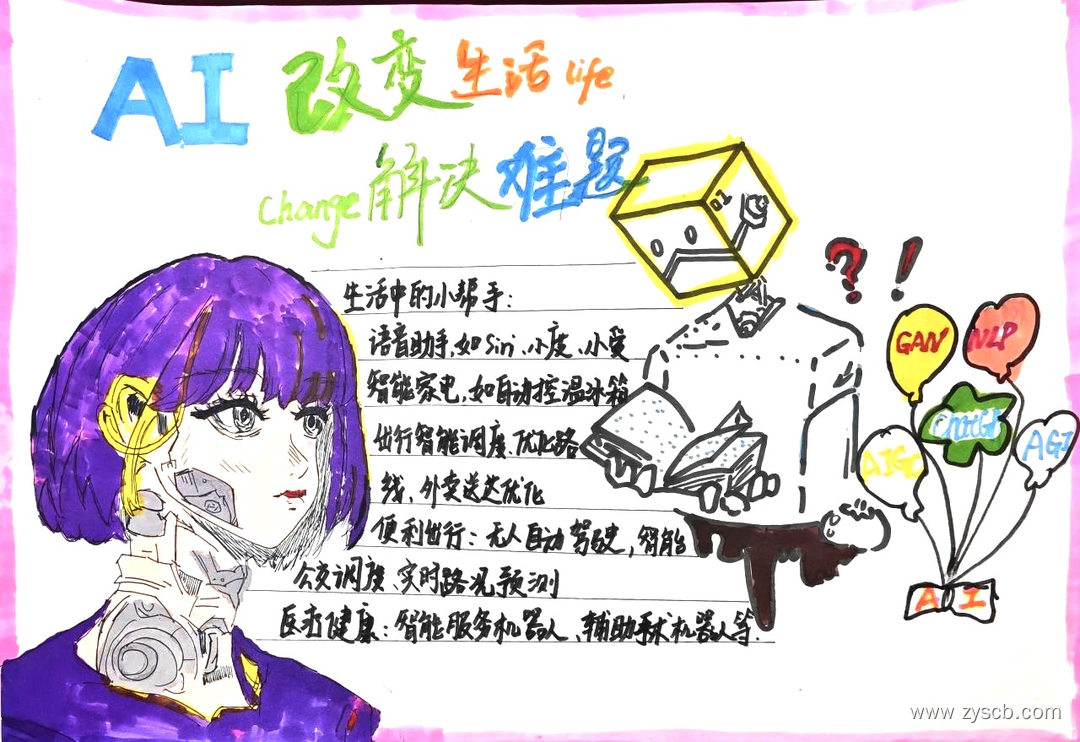 AI 改变生活 life
change 解决难题
生活中的小帮手：
语音助手,如 Siri、小度、小爱
智能家电,如自动控温冰箱
出行智能调度、优化路
线，外卖送达优化
便利出行：无人自动驾驶，智能
公交调度、实时路况预测
医疗健康：智能服务机器人、辅助手术机器人等.
? !
GAN
NLP
AIGC
AGI
AI
www.zyscb.com